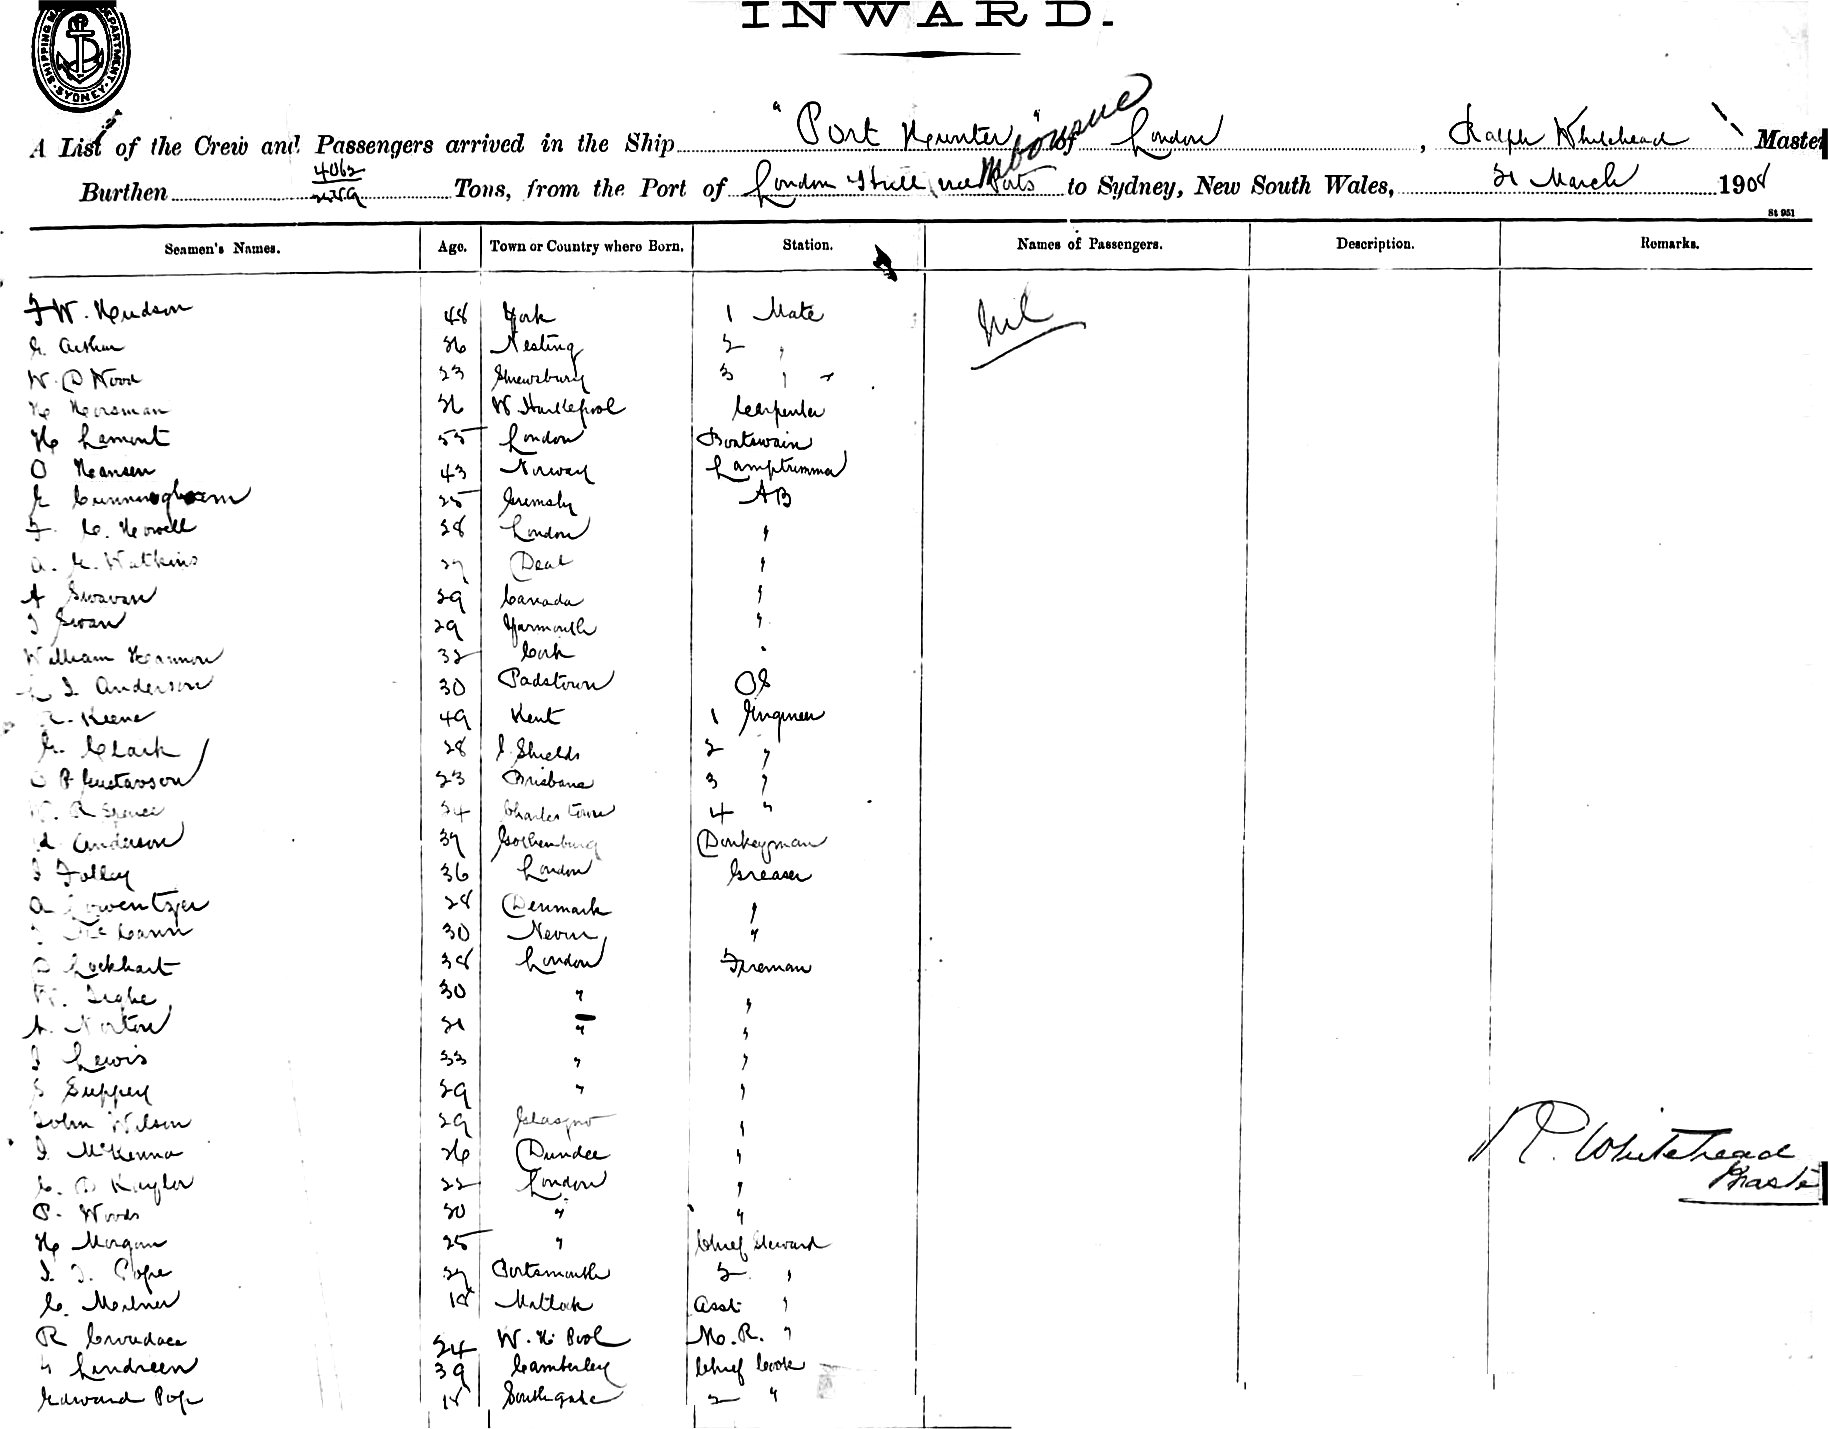 INWARD.
SHIPPING MASTER'S DEPARTMENT. SYDNEY
A List of the Crew and Passengers arrived in the Ship "Port Hunter" of London, Ralph Whitehead Master
Melbourne
Burthen 4062 Tons, from the Port of London Hull Ports to Sydney, New South Wales, 21 March 1908
St 951
Seamen's Names. Age. Town or Country where Born. Station. Names of Passengers. Description. Remarks.
F W. Hudson 48 York 1 Mate Nil
G. Arthur 26 Nesting 2 "
W. D Wood 23 Shrewsbury 3 "
H Horsman 26 W Hartlepool Carpenter
H Lamont 55 London Boatswain
O Hansen 43 Norway Lamptrimmer
G Cunningham 25 Grimsby AB
F. C. Howell 28 London "
A. G. Watkins 27 Deal "
A Swavan 29 Canada "
J Swan 29 Yarmouth "
William Hannon 32 Cork "
J Anderson 30 Padstow OS
R. Keene 49 Kent 1 Engineer
G. Clark 28 S. Shields 2 "
P Gustavson 23 Brisbane 3 "
W. R Spence 24 Charlestown 4 "
Anderson 37 Gothenburg Donkeyman
J Folley 36 London Greaser
A Lowentzer 28 Denmark "
McCann 30 Nevin "
D Lockhart 38 London Fireman
W. Tighe 30 " "
Norton 21 " "
J Lewis 33 " "
S Suppey 29 " "
John Wilson 29 Glasgow "
J. McKenna 26 Dundee "
C. D Kaylor 22 London "
P. Woods 30 " "
H Morgan 25 " Chief Steward
J. J. Pope 27 Portsmouth 2 "
C. Milner 18 Matlock Asst "
R Croudace 24 W. H. Pool M.R. "
Lindreen 39 Camberley Chief Cook
Edward Pope 18 Southgate 2 "
R. Whitehead
Master